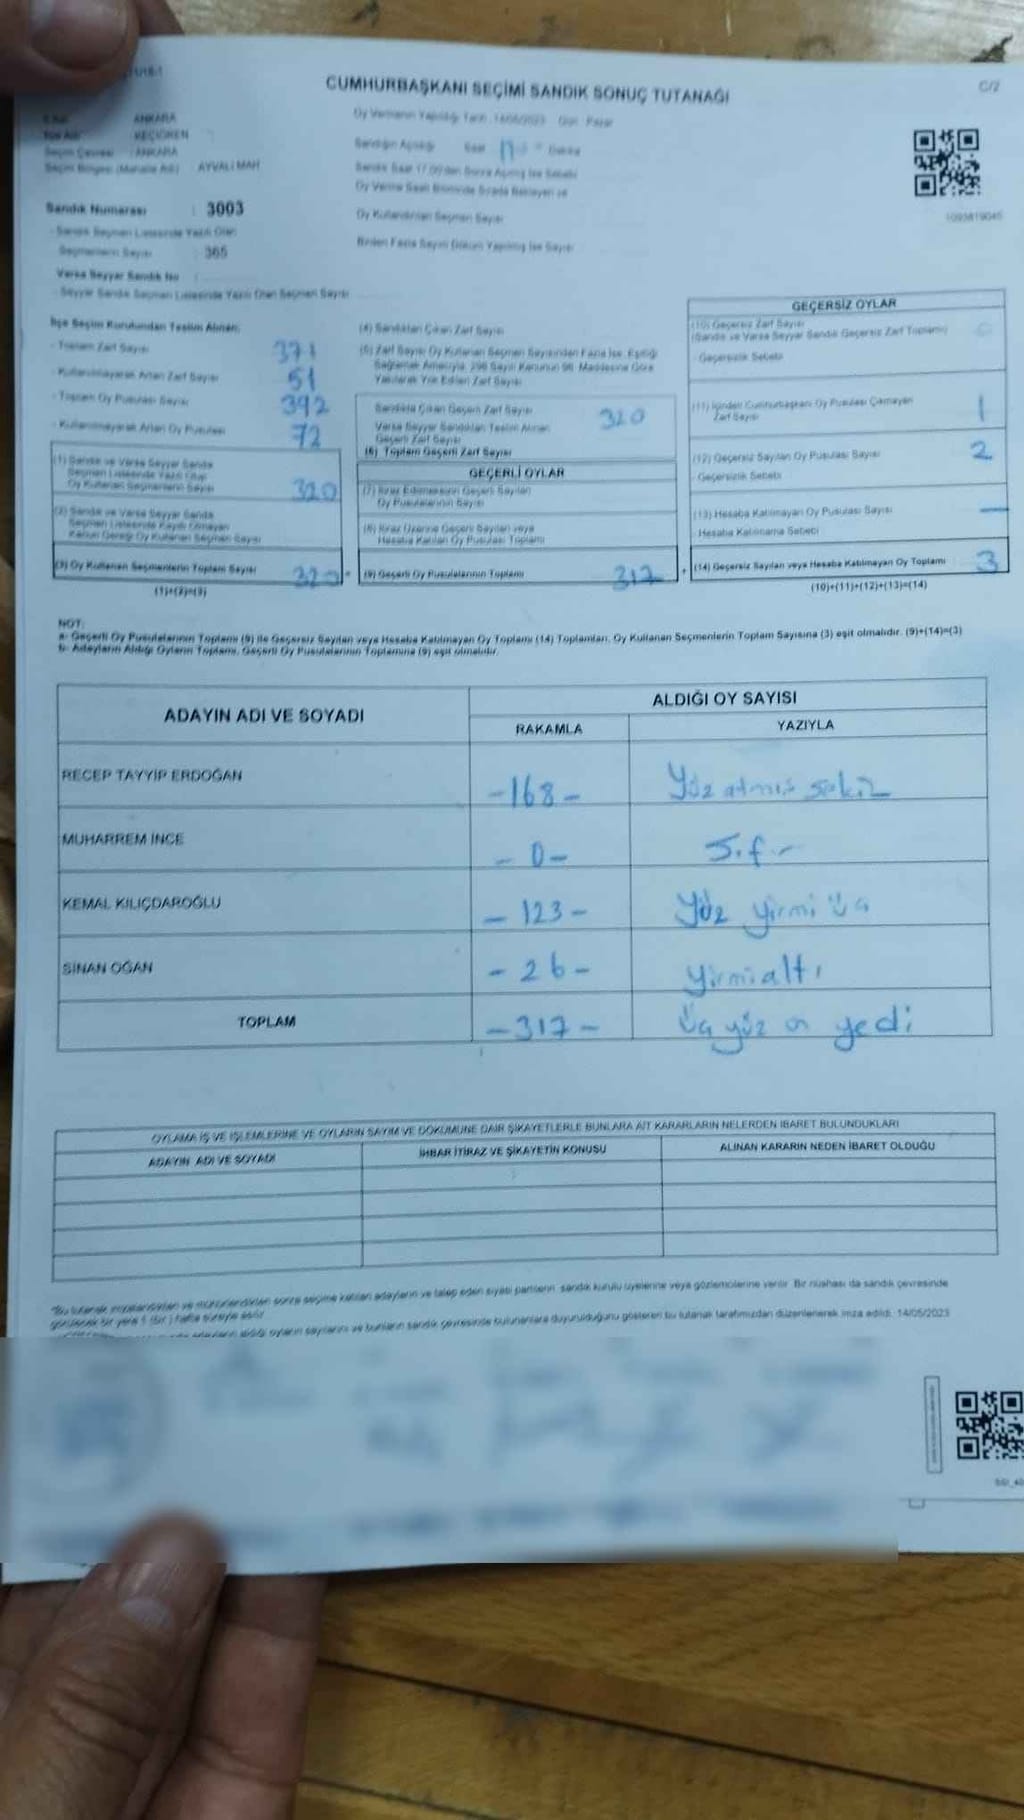 CUMHURBAŞKANI SEÇİMİ SANDIK SONUÇ TUTANAĞI
C/2
ANKARA
KEÇİÖREN
ANKARA
AYVALI MAH
Oy Vermenin Yapıldığı Tarih : 14/05/2023 Gün : Pazar
Sandığın Açıldığı Saat
Dakika
Sandık Saat 17.00'den Sonra Açılmış İse Sebebi
Oy Verme Saati Bitiminde Sırada Bekleyen ve
Oy Kullandırılan Seçmen Sayısı
Birden Fazla Sayım Döküm Yapılmış İse Sayısı
Sandık Numarası : 3003
- Sandık Seçmen Listesinde Yazılı Olan
Seçmenlerin Sayısı : 365
Varsa Seyyar Sandık No
- Seyyar Sandık Seçmen Listesinde Yazılı Olan Seçmen Sayısı
İlçe Seçim Kurulundan Teslim Alınan;
- Toplam Zarf Sayısı 371
- Kullanılmayarak Artan Zarf Sayısı 51
- Toplam Oy Pusulası Sayısı 392
- Kullanılmayarak Artan Oy Pusulası 72
(1) Sandık ve Varsa Seyyar Sandık
Seçmen Listesinde Yazılı Olup
Oy Kullanan Seçmenlerin Sayısı 320
(2) Sandık ve Varsa Seyyar Sandık
Seçmen Listesinde Kayıtlı Olmayan
Kanun Gereği Oy Kullanan Seçmen Sayısı
(3) Oy Kullanan Seçmenlerin Toplam Sayısı 320
(1)+(2)=(3)
(4) Sandıktan Çıkan Zarf Sayısı
(5) Zarf Sayısı Oy Kullanan Seçmen Sayısından Fazla İse, Eşitliği
Sağlamak Amacıyla, 298 Sayılı Kanunun 98. Maddesine Göre
Yakılarak Yok Edilen Zarf Sayısı
Sandıkta Çıkan Geçerli Zarf Sayısı 320
Varsa Seyyar Sandıktan Teslim Alınan
Geçerli Zarf Sayısı
(6) Toplam Geçerli Zarf Sayısı
GEÇERLİ OYLAR
(7) İtiraz Edilmeksizin Geçerli Sayılan
Oy Pusulalarının Sayısı
(8) İtiraz Üzerine Geçerli Sayılan veya
Hesaba Katılan Oy Pusulası Toplamı
(9) Geçerli Oy Pusulalarının Toplamı 317
GEÇERSİZ OYLAR
(10) Geçersiz Zarf Sayısı
(Sandık ve Varsa Seyyar Sandık Geçersiz Zarf Toplamı)
- Geçersizlik Sebebi
(11) İçinden Cumhurbaşkanı Oy Pusulası Çıkmayan
Zarf Sayısı 1
(12) Geçersiz Sayılan Oy Pusulası Sayısı 2
- Geçersizlik Sebebi
(13) Hesaba Katılmayan Oy Pusulası Sayısı —
- Hesaba Katılmama Sebebi
(14) Geçersiz Sayılan veya Hesaba Katılmayan Oy Toplamı 3
(10)+(11)+(12)+(13)=(14)
NOT:
a- Geçerli Oy Pusulalarının Toplamı (9) ile Geçersiz Sayılan veya Hesaba Katılmayan Oy Toplamı (14) Toplamları, Oy Kullanan Seçmenlerin Toplam Sayısına (3) eşit olmalıdır. (9)+(14)=(3)
b- Adayların Aldığı Oyların Toplamı, Geçerli Oy Pusulalarının Toplamına (9) eşit olmalıdır.
ADAYIN ADI VE SOYADI
ALDIĞI OY SAYISI
RAKAMLA YAZIYLA
RECEP TAYYİP ERDOĞAN -168- Yüz atmış sekiz
MUHARREM İNCE -0- Sıfır
KEMAL KILIÇDAROĞLU -123- Yüz yirmi üç
SİNAN OĞAN -26- Yirmi altı
TOPLAM -317- Üç yüz on yedi
OYLAMA İŞ VE İŞLEMLERİNE VE OYLARIN SAYIM VE DÖKÜMÜNE DAİR ŞİKAYETLERLE BUNLARA AİT KARARLARIN NELERDEN İBARET BULUNDUKLARI
ADAYIN ADI VE SOYADI İHBAR İTİRAZ VE ŞİKAYETİN KONUSU ALINAN KARARIN NEDEN İBARET OLDUĞU
*Bu tutanak imzalandıktan ve mühürlendikten sonra seçime katılan adayların ve talep eden siyasi partilerin sandık kurulu üyelerine veya gözlemcilerine verilir. Bir nüshası da sandık çevresinde
görülecek bir yere 1 (bir) hafta süreyle asılır.
adayların aldığı oyların sayılarını ve bunların sandık çevresinde bulunanlara duyurulduğunu gösteren bu tutanak tarafımızdan düzenlenerek imza edildi. 14/05/2023